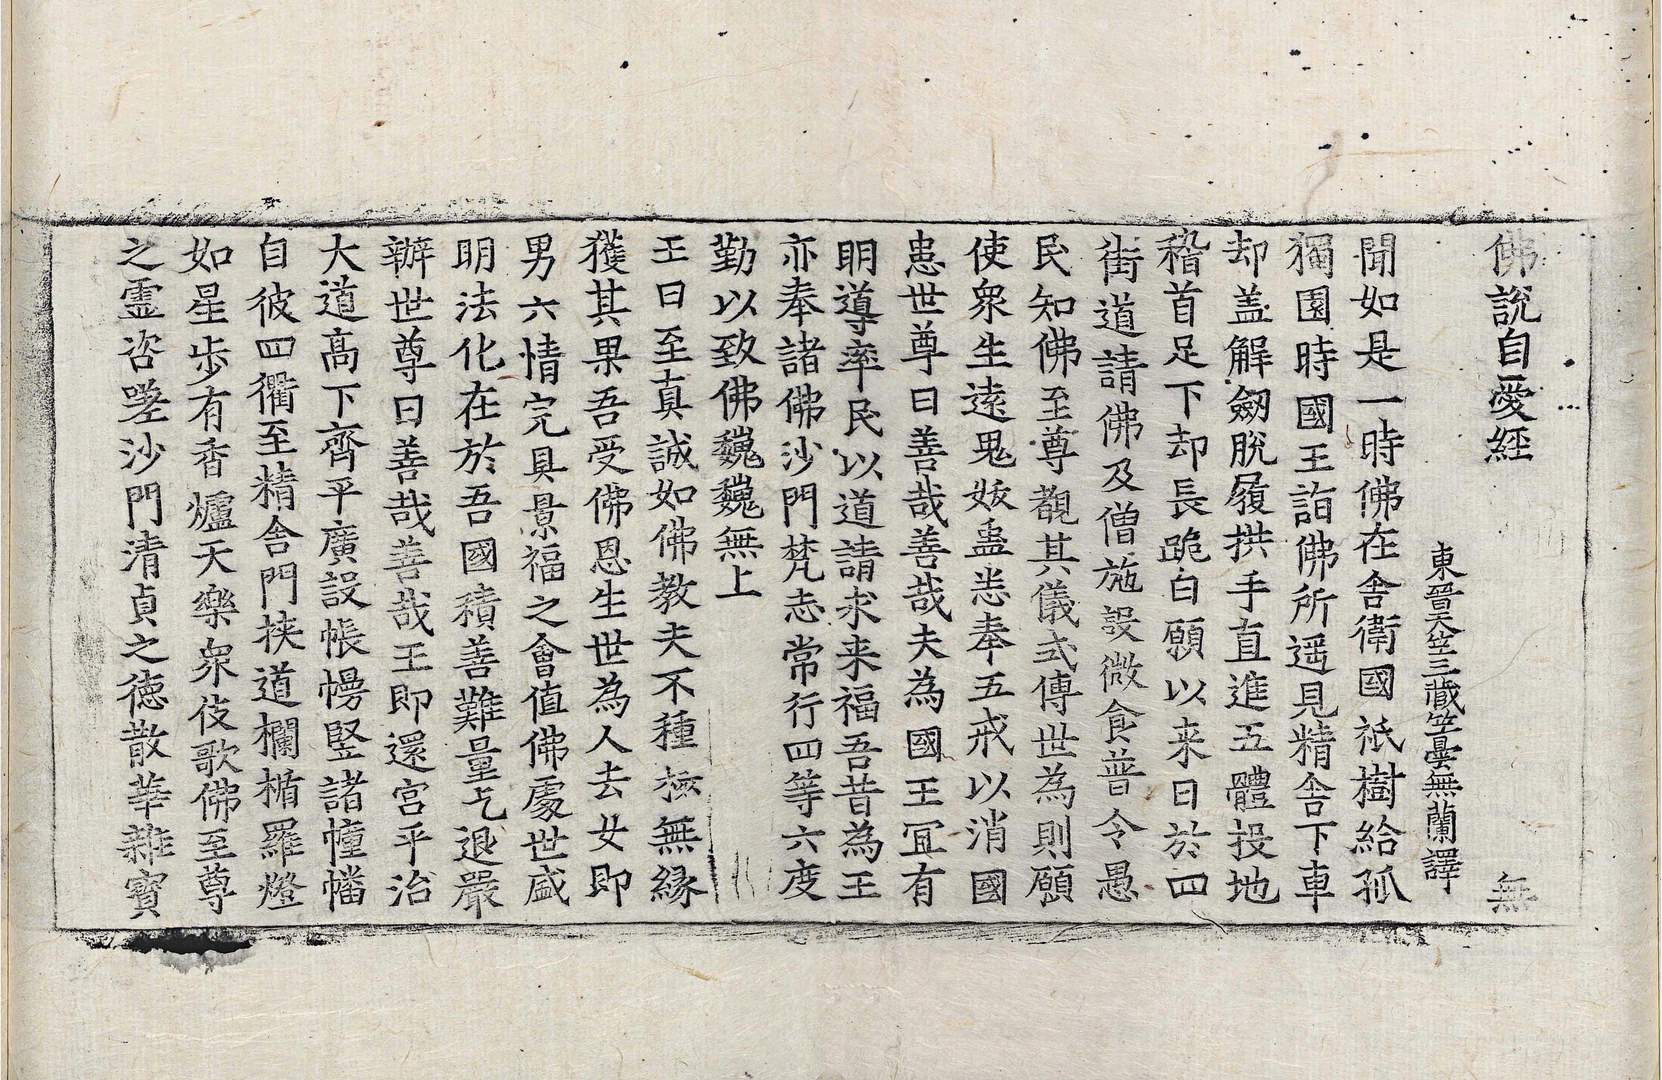 佛說自愛経 無
東晉天竺三藏竺曇無蘭譯
聞如是一時佛在舎衛國祇樹給孤
獨園時國王詣佛所遥見精舎下車
却盖解劒脫履拱手直進五體投地
稽首足下却長跪白願以来日於四
街道請佛及僧施設微食普令愚
民知佛至尊觀其儀式傳世為則願
使衆生遠鬼妖蠱悉奉五戒以消國
患世尊曰善哉善哉夫為國王冝有
明導率民以道請求来福吾昔為王
亦奉諸佛沙門梵志常行四等六度
勤以致佛巍巍無上
王曰至真誠如佛教夫不種極無縁
獲其果吾受佛恩生世為人去女即
男六情完具景福之會值佛處世盛
明法化在於吾國積善難量乞退嚴
辦世尊曰善哉善哉王即還宫平治
大道高下齊平廣設帳幔竪諸幢幡
自彼四衢至精舎門挾道欄楯羅燈
如星步有香爐天樂衆伎歌佛至尊
之霊咨嗟沙門清貞之徳散華雜寳